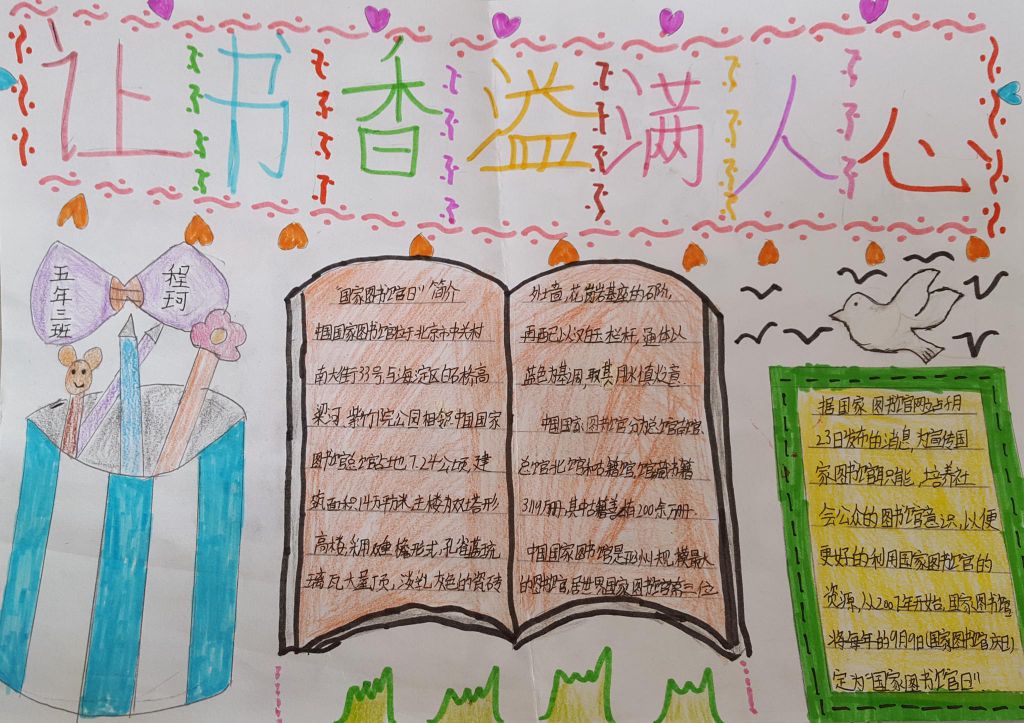 让书香溢满人心
五年三班
程珂
"国家图书馆日"简介
中国国家图书馆位于北京市中关村
南大街33号,与海淀区白石桥高
梁河、紫竹院公园相邻.中国国家
图书馆总馆占地7.24公顷,建
筑面积14万平方米.主楼为双塔形
高楼,采用双重檐形式,孔雀蓝琉
璃瓦大屋顶,淡乳灰色的瓷砖
外墙,花岗岩基座的石阶,
再配以汉白玉栏杆,通体以
蓝色为基调,取其用水慎火意
中国国家图书馆分为总馆南馆、
总馆北馆和古籍馆,馆藏书籍
3119万册,其中古籍善本200余万册.
中国国家图书馆是亚洲规模最大
的图书馆,居世界国家图书馆第三位
据国家图书馆网站 月
23日发布的消息,为宣传国
家图书馆职能,培养社
会公众的图书馆意识,以便
更好的利用国家图书馆的
资源,从2007年开始,国家图书馆
将每年的9月9日(国家图书馆 庆日)
定为"国家图书馆日".